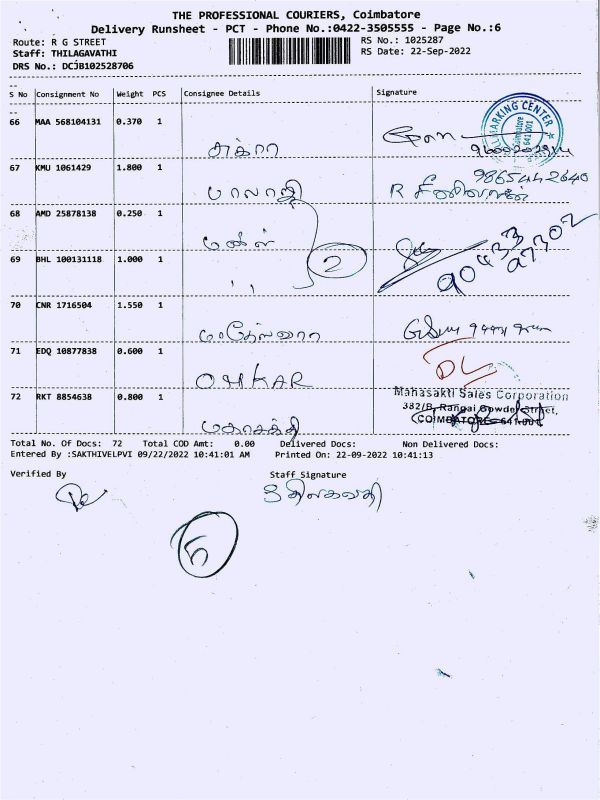 THE PROFESSIONAL COURIERS, Coimbatore
Delivery Runsheet - PCT - Phone No.:0422-3505555 - Page No.:6
Route: R G STREET
RS No.: 1025287
Staff: THILAGAVATHI
RS Date: 22-Sep-2022
DRS No.: DCJB102528706
S No Consignment No Weight PCS Consignee Details Signature
66 MAA 568104131 0.370 1
HALLMARKING CENTER
Coimbatore
641 001
67 KMU 1061429 1.800 1 பாலாஜி
9865442640
R சீனிவாசன்
68 AMD 25878138 0.250 1
2
69 BHL 100131118 1.000 1 , ,
90433
97302
70 CNR 1716504 1.550 1
71 EDQ 10877838 0.600 1 OMKAR
72 RKT 8854638 0.800 1 மகாசக்தி
Mahasakti Sales Corporation
382/B, Rangai Gowder Street,
COIMBATORE - 641 001
Total No. Of Docs: 72 Total COD Amt: 0.00 Delivered Docs: Non Delivered Docs:
Entered By :SAKTHIVELPVI 09/22/2022 10:41:01 AM Printed On: 22-09-2022 10:41:13
Verified By Staff Signature
S திலகவதி
5